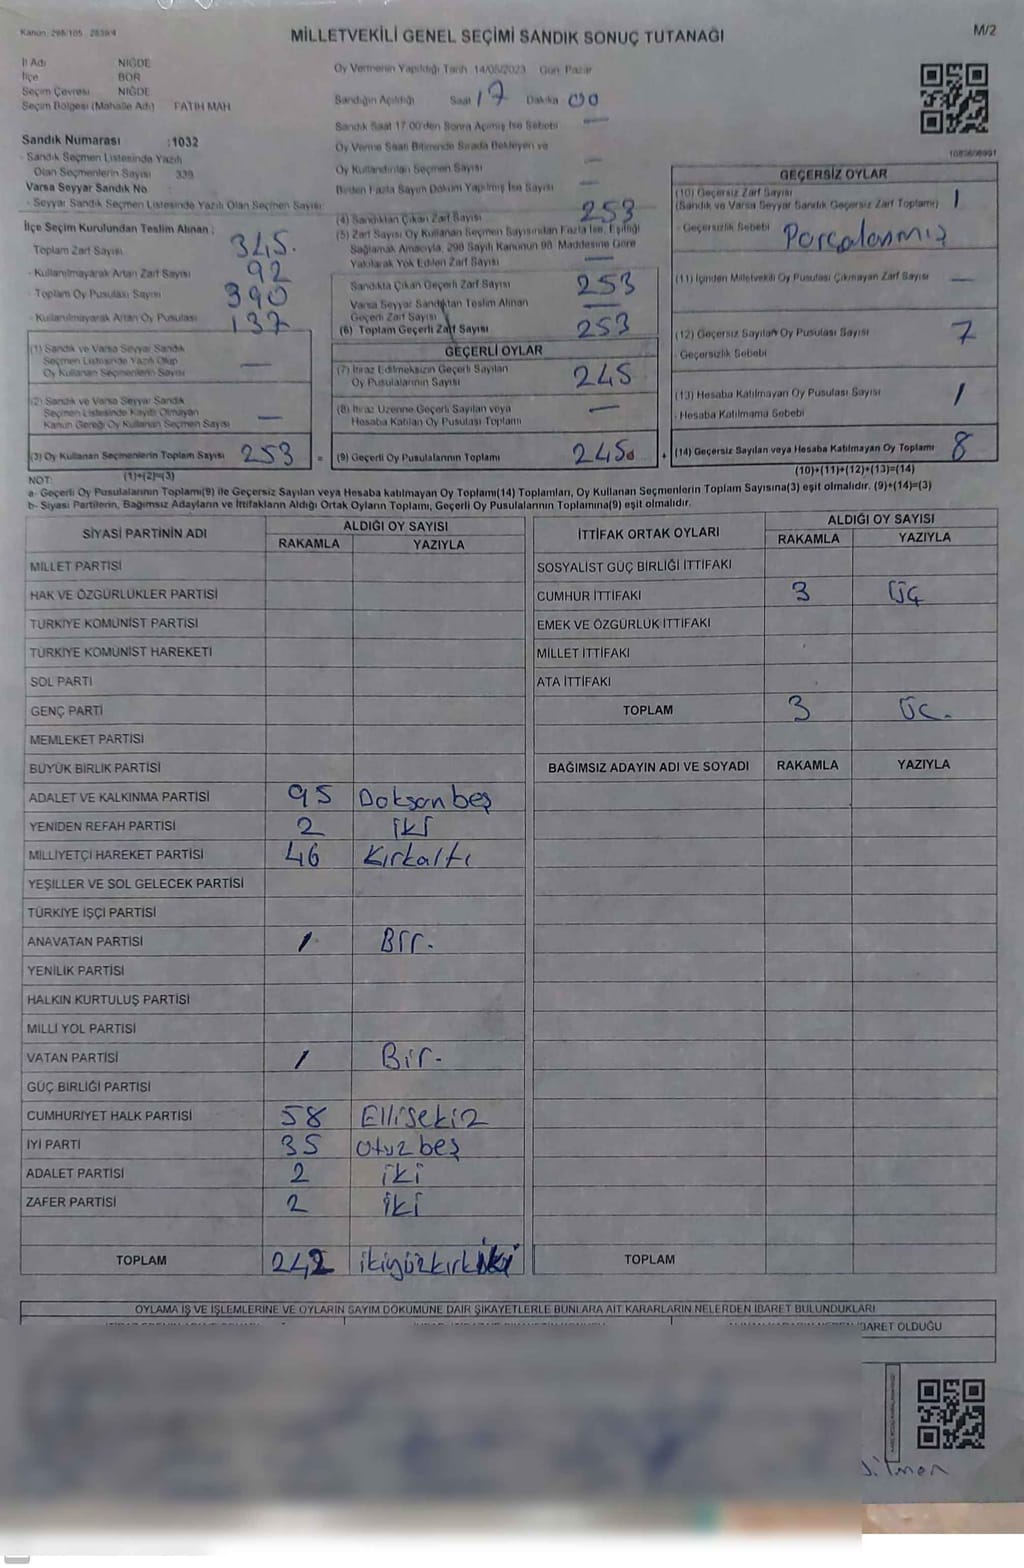 Kanun: 298/105 - 2839/4
MİLLETVEKİLİ GENEL SEÇİMİ SANDIK SONUÇ TUTANAĞI
M/2
İl Adı NİĞDE
İlçe BOR
Seçim Çevresi NİĞDE
Seçim Bölgesi (Mahalle Adı) FATİH MAH
Sandık Numarası :1032
- Sandık Seçmen Listesinde Yazılı
Olan Seçmenlerin Sayısı 339
Varsa Seyyar Sandık No :
- Seyyar Sandık Seçmen Listesinde Yazılı Olan Seçmen Sayısı
Oy Vermenin Yapıldığı Tarih 14/05/2023 Gün Pazar
Sandığın Açıldığı Saat 17 Dakika 00
Sandık Saat 17.00'den Sonra Açılmış İse Sebebi —
Oy Verme Saati Bitiminde Sırada Bekleyen ve
Oy Kullandırılan Seçmen Sayısı —
Birden Fazla Sayım Döküm Yapılmış İse Sayısı —
İlçe Seçim Kurulundan Teslim Alınan ;
Toplam Zarf Sayısı 345.
- Kullanılmayarak Artan Zarf Sayısı 92
- Toplam Oy Pusulası Sayısı 390
- Kullanılmayarak Artan Oy Pusulası 137
(1) Sandık ve Varsa Seyyar Sandık
Seçmen Listesinde Yazılı Olup
Oy Kullanan Seçmenlerin Sayısı —
(2) Sandık ve Varsa Seyyar Sandık
Seçmen Listesinde Kayıtlı Olmayan
Kanun Gereği Oy Kullanan Seçmen Sayısı —
(3) Oy Kullanan Seçmenlerin Toplam Sayısı 253 =
(1)+(2)=(3)
(4) Sandıktan Çıkan Zarf Sayısı 253
(5) Zarf Sayısı Oy Kullanan Seçmen Sayısından Fazla İse, Eşitliği
Sağlamak Amacıyla, 298 Sayılı Kanunun 98. Maddesine Göre
Yakılarak Yok Edilen Zarf Sayısı —
Sandıkta Çıkan Geçerli Zarf Sayısı 253
Varsa Seyyar Sandıktan Teslim Alınan
Geçerli Zarf Sayısı —
(6) Toplam Geçerli Zarf Sayısı 253
GEÇERLİ OYLAR
(7) İtiraz Edilmeksizin Geçerli Sayılan
Oy Pusulalarının Sayısı 245
(8) İtiraz Üzerine Geçerli Sayılan veya
Hesaba Katılan Oy Pusulası Toplamı —
(9) Geçerli Oy Pusulalarının Toplamı 245 +
1083606991
GEÇERSİZ OYLAR
(10) Geçersiz Zarf Sayısı 1
(Sandık ve Varsa Seyyar Sandık Geçersiz Zarf Toplamı)
- Geçersizlik Sebebi Parçalanmış
(11) İçinden Milletvekili Oy Pusulası Çıkmayan Zarf Sayısı —
(12) Geçersiz Sayılan Oy Pusulası Sayısı 7
- Geçersizlik Sebebi
(13) Hesaba Katılmayan Oy Pusulası Sayısı 1
- Hesaba Katılmama Sebebi
(14) Geçersiz Sayılan veya Hesaba Katılmayan Oy Toplamı 8
(10)+(11)+(12)+(13)=(14)
NOT:
a- Geçerli Oy Pusulalarının Toplamı(9) ile Geçersiz Sayılan veya Hesaba katılmayan Oy Toplamı(14) Toplamları, Oy Kullanan Seçmenlerin Toplam Sayısına(3) eşit olmalıdır. (9)+(14)=(3)
b- Siyasi Partilerin, Bağımsız Adayların ve İttifakların Aldığı Ortak Oyların Toplamı, Geçerli Oy Pusulalarının Toplamına(9) eşit olmalıdır.
SİYASİ PARTİNİN ADI ALDIĞI OY SAYISI
RAKAMLA YAZIYLA
MİLLET PARTİSİ
HAK VE ÖZGÜRLÜKLER PARTİSİ
TÜRKİYE KOMÜNİST PARTİSİ
TÜRKİYE KOMÜNİST HAREKETİ
SOL PARTİ
GENÇ PARTİ
MEMLEKET PARTİSİ
BÜYÜK BİRLİK PARTİSİ
ADALET VE KALKINMA PARTİSİ 95 Doksan beş
YENİDEN REFAH PARTİSİ 2 iki
MİLLİYETÇİ HAREKET PARTİSİ 46 Kırkaltı
YEŞİLLER VE SOL GELECEK PARTİSİ
TÜRKİYE İŞÇİ PARTİSİ
ANAVATAN PARTİSİ 1 Bir.
YENİLİK PARTİSİ
HALKIN KURTULUŞ PARTİSİ
MİLLİ YOL PARTİSİ
VATAN PARTİSİ 1 Bir.
GÜÇ BİRLİĞİ PARTİSİ
CUMHURİYET HALK PARTİSİ 58 Ellisekiz
İYİ PARTİ 35 otuz beş
ADALET PARTİSİ 2 iki
ZAFER PARTİSİ 2 iki
TOPLAM 242 ikiyüzkırkiki
İTTİFAK ORTAK OYLARI ALDIĞI OY SAYISI
RAKAMLA YAZIYLA
SOSYALİST GÜÇ BİRLİĞİ İTTİFAKI
CUMHUR İTTİFAKI 3 Üç
EMEK VE ÖZGÜRLÜK İTTİFAKI
MİLLET İTTİFAKI
ATA İTTİFAKI
TOPLAM 3 Üç.
BAĞIMSIZ ADAYIN ADI VE SOYADI RAKAMLA YAZIYLA
TOPLAM
OYLAMA İŞ VE İŞLEMLERİNE VE OYLARIN SAYIM DÖKÜMÜNE DAİR ŞİKAYETLERLE BUNLARA AİT KARARLARIN NELERDEN İBARET BULUNDUKLARI
İBARET OLDUĞU